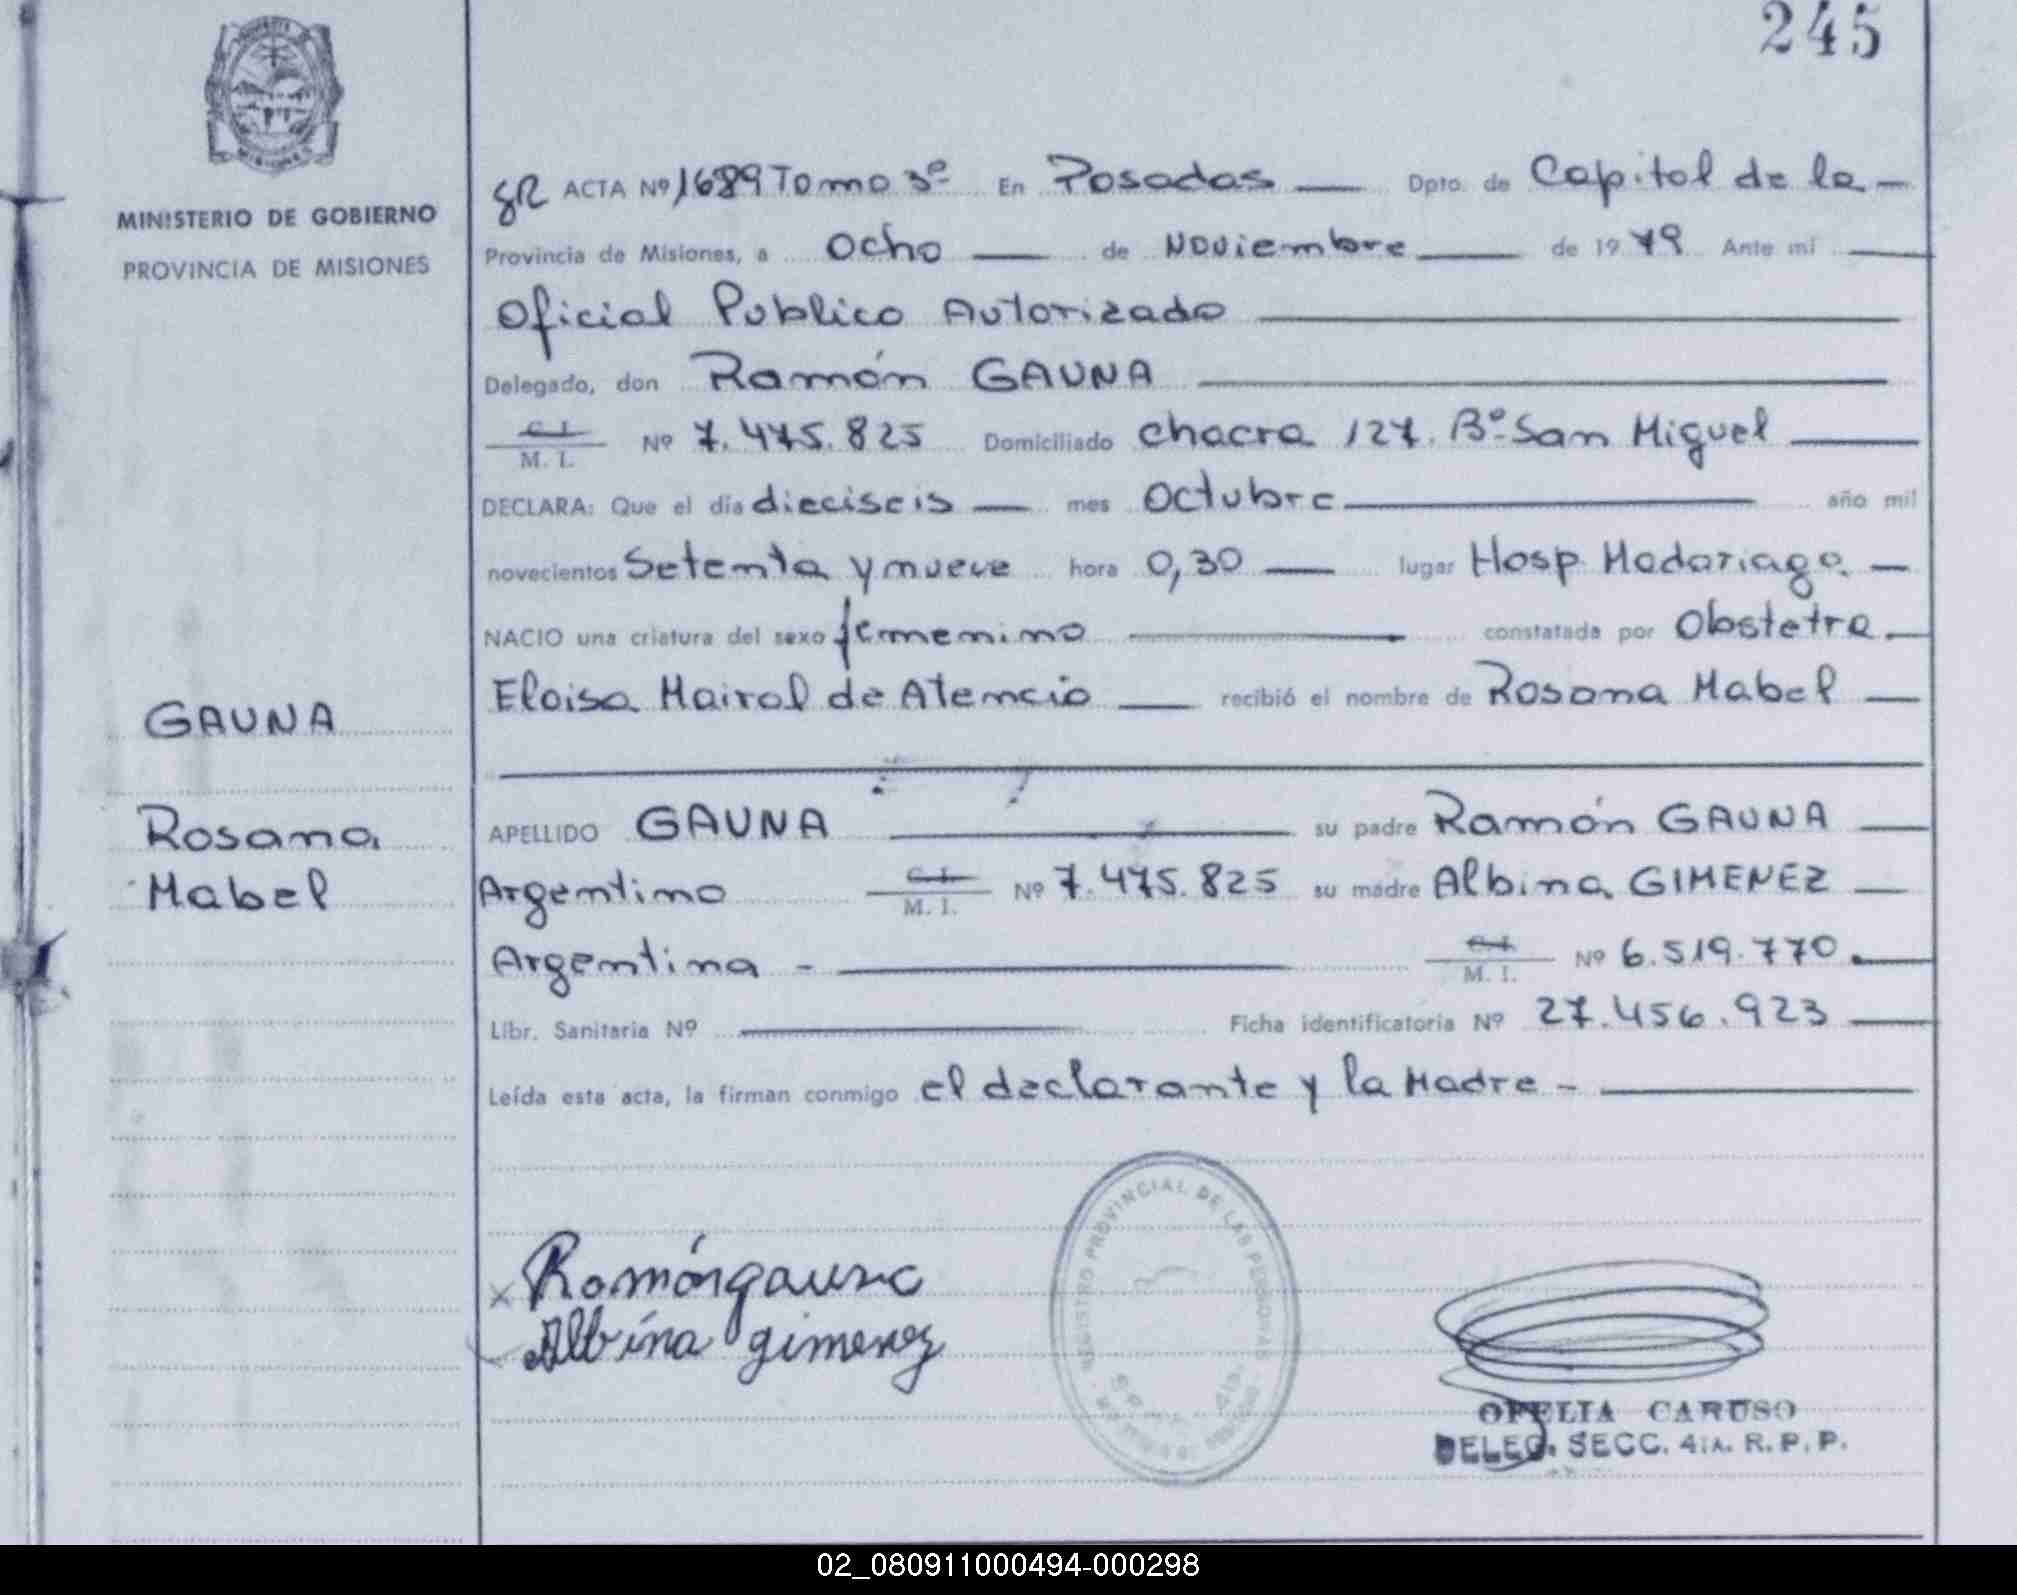 245
MISIONES
MINISTERIO DE GOBIERNO
PROVINCIA DE MISIONES
GAUNA
Rosana
Mabel
gR ACTA Nº 1689 Tomo 3º En Posadas — Dpto. de Capital de la —
Provincia de Misiones, a Ocho — de Noviembre — de 19 79 Ante mí —
Oficial Publico Autorizado —
Delegado, don Ramón GAUNA —
C. I.
M. I. Nº 7.475.825 Domiciliado chacra 127. Bº San Miguel —
DECLARA: Que el día dieciseis — mes Octubre — año mil
novecientos Setenta y nueve hora 0,30 — lugar Hosp. Madariaga. —
NACIO una criatura del sexo femenino — constatada por Obstetra. —
Eloisa Mairal de Atencio — recibió el nombre de Rosana Mabel —
APELLIDO GAUNA — su padre Ramón GAUNA —
Argentino C. I.
M. I. Nº 7.475.825 su madre Albina GIMENEZ —
Argentina - — C. I.
M. I. Nº 6.519.770. —
Libr. Sanitaria Nº — Ficha identificatoria Nº 27.456.923 —
Leída esta acta, la firman conmigo el declarante y la Madre - —
Ramón gauna
Albina gimenez
REGISTRO PROVINCIAL DE LAS PERSONAS
OFELIA CARUSO
DELEG. SECC. 4ta. R. P. P.
02_080911000494-000298